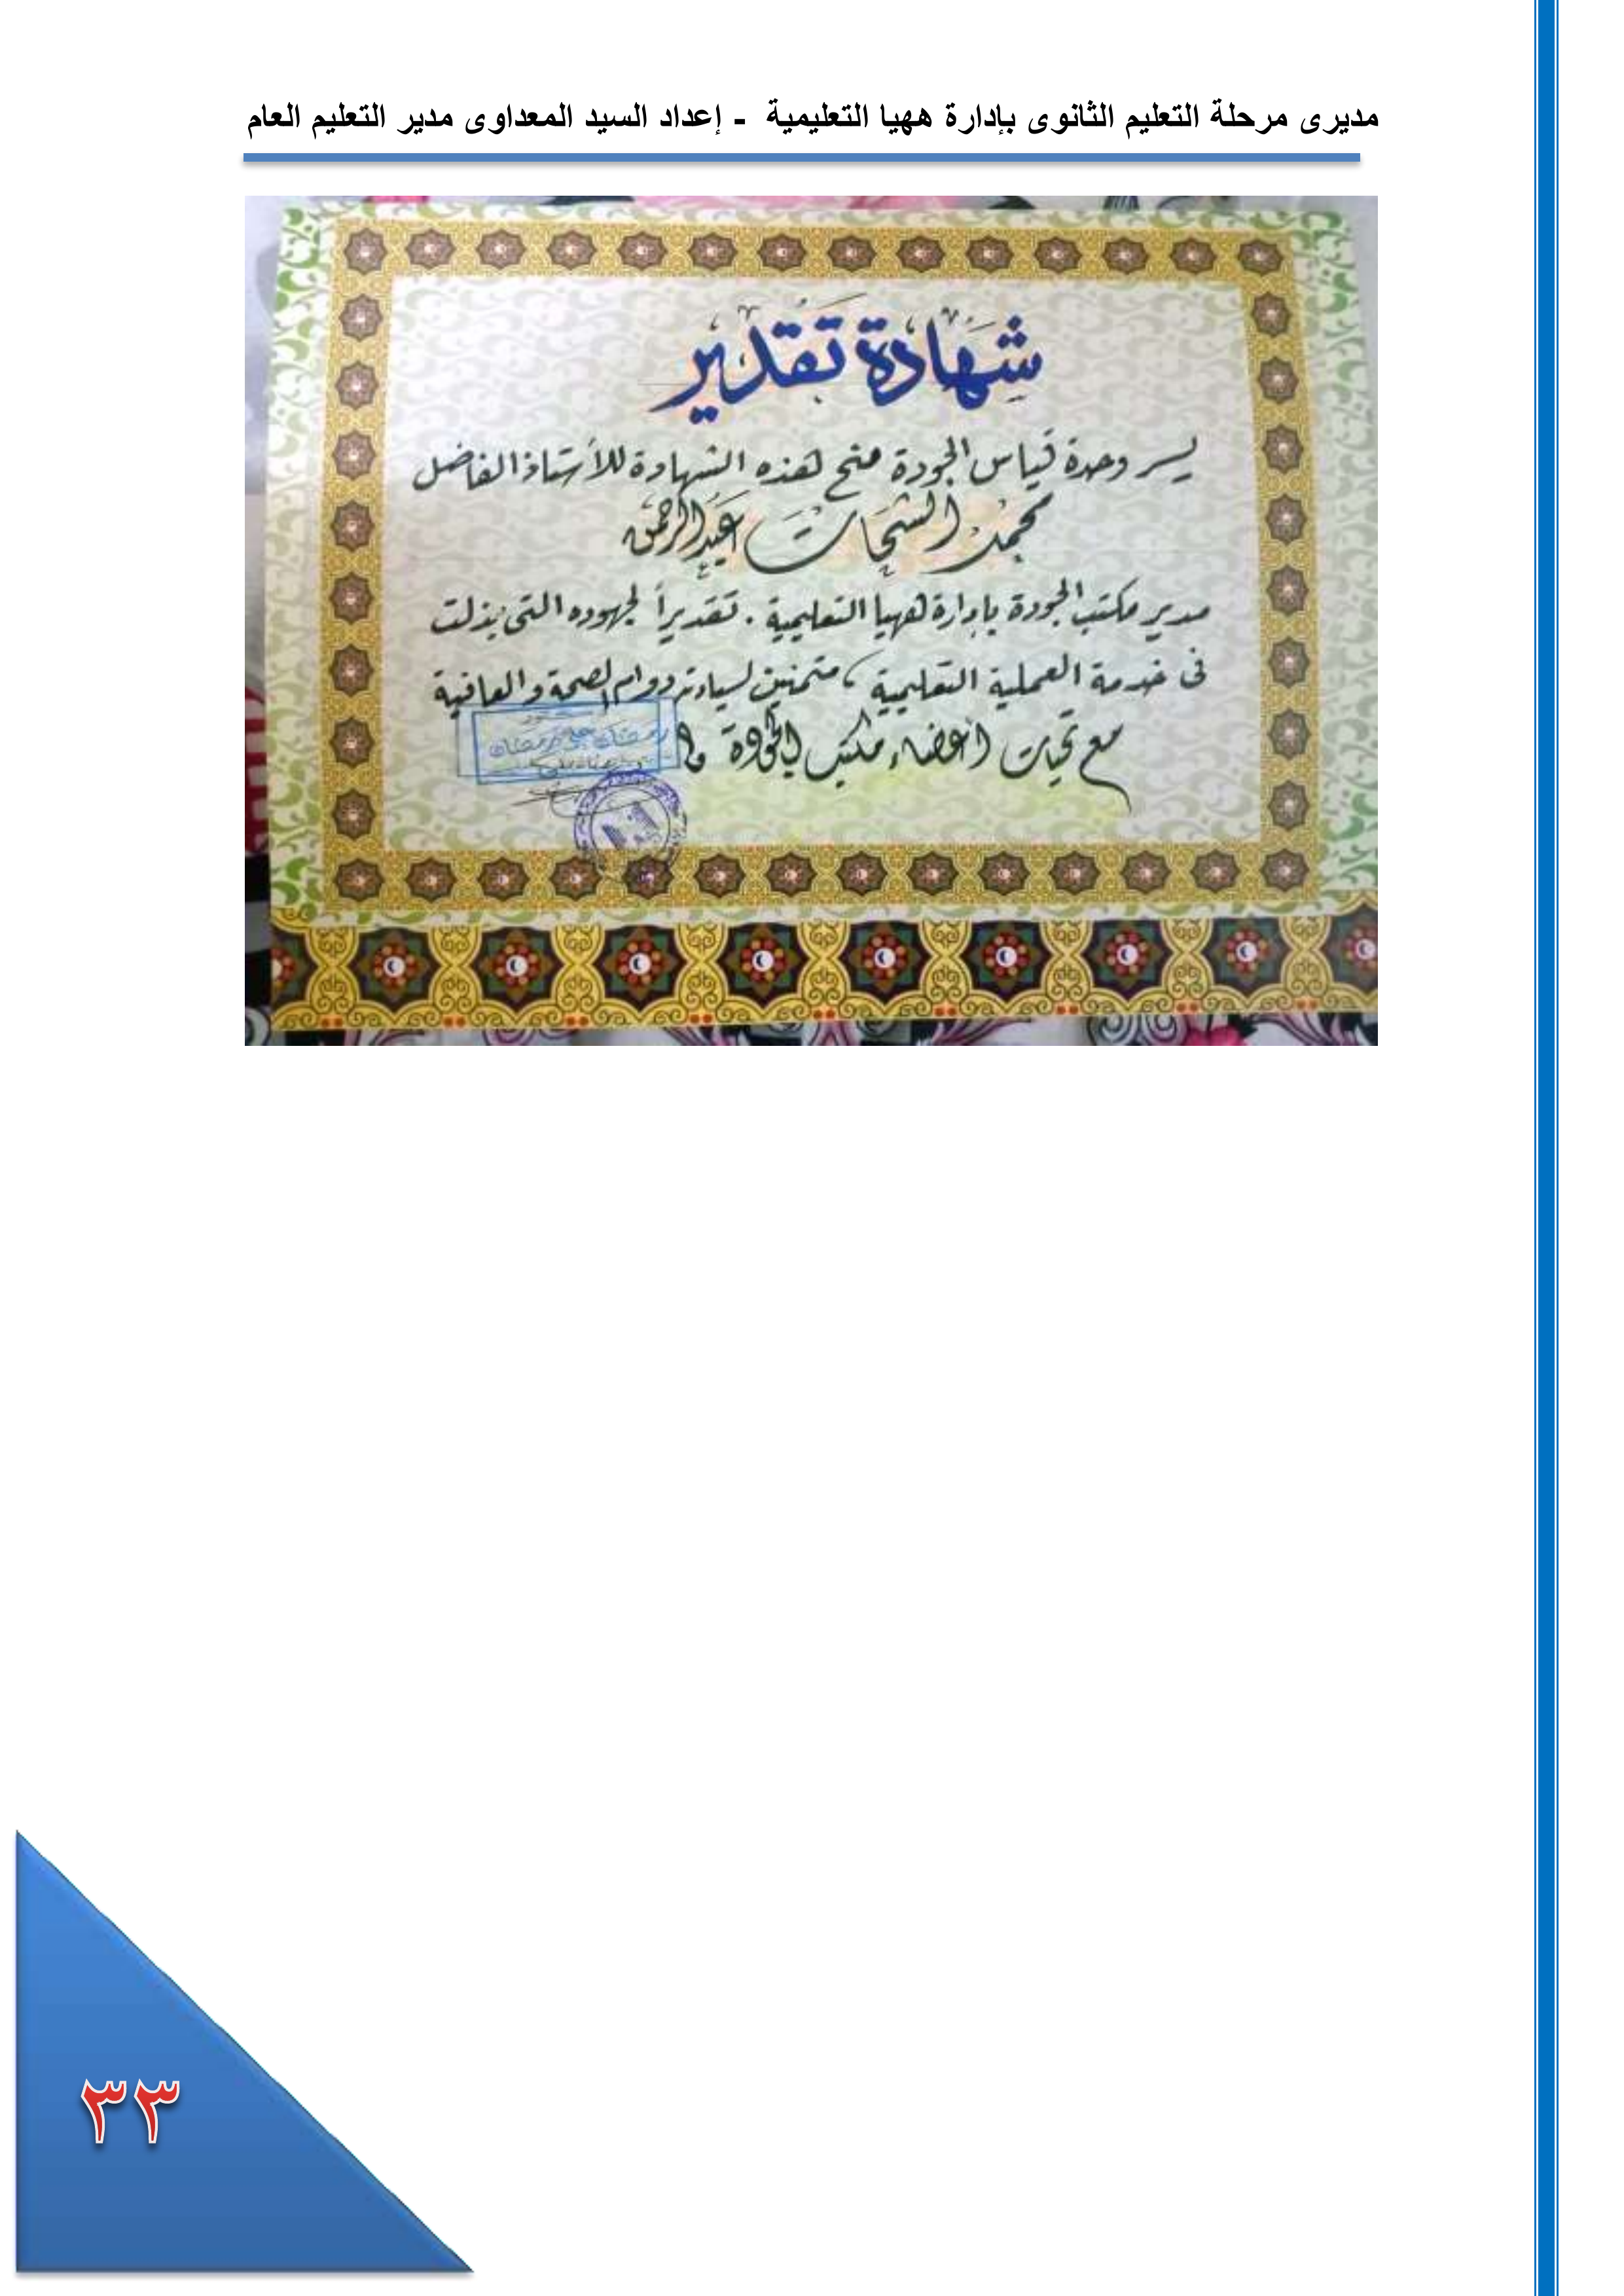 مديرى مرحلة التعليم الثانوى بإدارة ههيا التعليمية - إعداد السيد المعداوى مدير التعليم العام
شهادة تقدير
يسر وحدة قياس الجودة منح هذه الشهادة للأستاذ الفاضل
محمد الشحات عبد الرحمن
مدير مكتب الجودة بإدارة ههيا التعليمية . تقديراً لجهوده التى بذلت
فى خدمة العملية التعليمية ، متمنين لسيادته دوام الصحة والعافية
مع تحيات أعضاء مكتب الجودة
رمضان على رمضان
٣٣